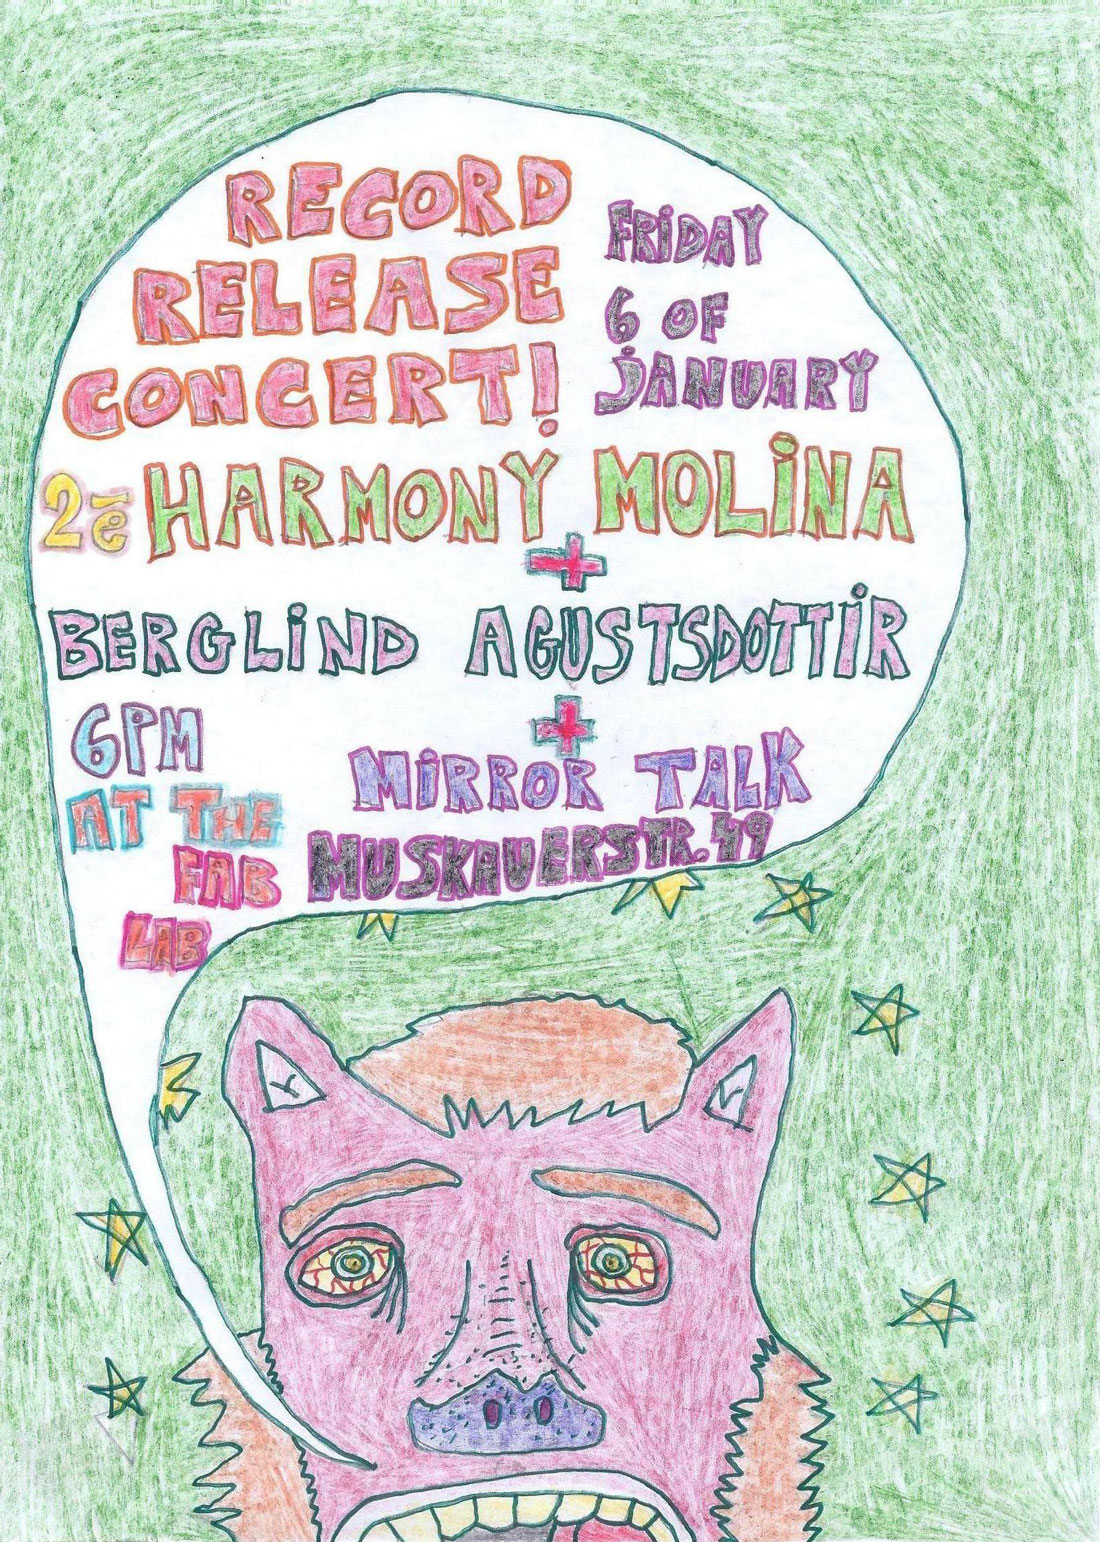 RECORD
RELEASE
CONCERT!
FRIDAY
6 OF
JANUARY
2€ HARMONY MOLINA
+
BERGLIND AGUSTSDOTTIR
+
6PM
MIRROR TALK
AT THE
FAB
LAB
MUSKAUERSTR. 49